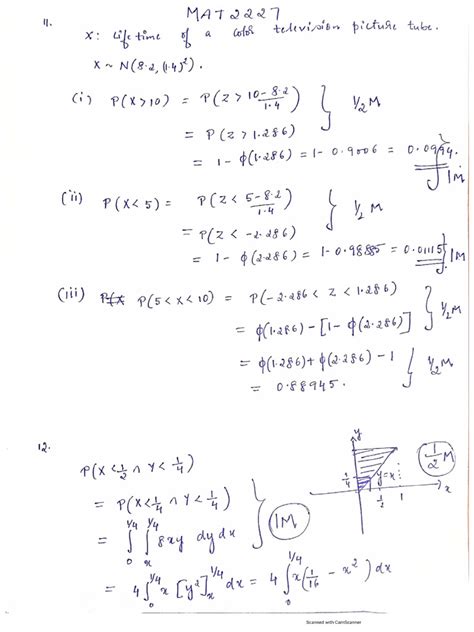 MAT2227
11.
X: Life time of a color television picture tube.
X ~ N(8.2, (1.4)²).
(i) P(X>10) = P(Z > 10-8.2/1.4) } 1/2 M
= P(Z > 1.286)
= 1 - φ(1.286) = 1 - 0.9006 = 0.0994. } 1M
(ii) P(X < 5) = P(Z < 5-8.2/1.4) } 1/2 M
= P(Z < -2.286)
= 1 - φ(2.286) = 1 - 0.98885 = 0.01115 } 1M
(iii) P(5 < X < 10) = P(-2.286 < Z < 1.286) } 1/2 M
= φ(1.286) - [1 - φ(2.286)]
= φ(1.286) + φ(2.286) - 1 } 1/2 M
= 0.88945.
12.
P(X < 1/2 ∩ Y < 1/4)
= P(X < 1/4 ∩ Y < 1/4)
= ∫₀^{1/4} ∫ₓ^{1/4} 8xy dy dx } 1M
= 4 ∫₀^{1/4} x [y²]ₓ^{1/4} dx = 4 ∫₀^{1/4} x (1/16 - x²) dx
y
1/4
y=x
1/2
1
x
1/2 M
Scanned with CamScanner